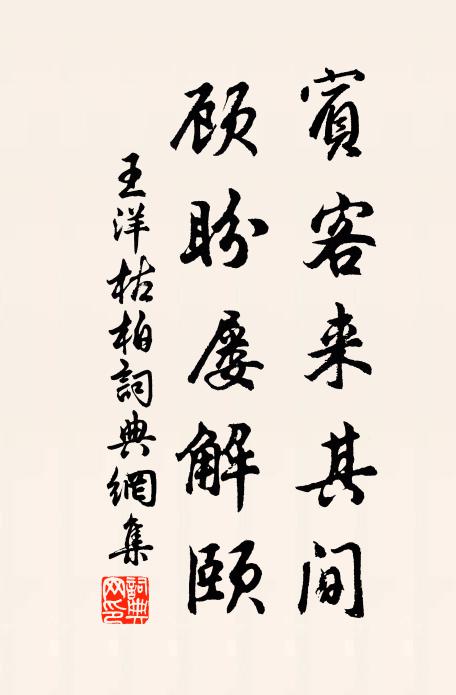 賓客来其间
顾盼屡解颐
王洋枯柏詞典網集
詞典網印